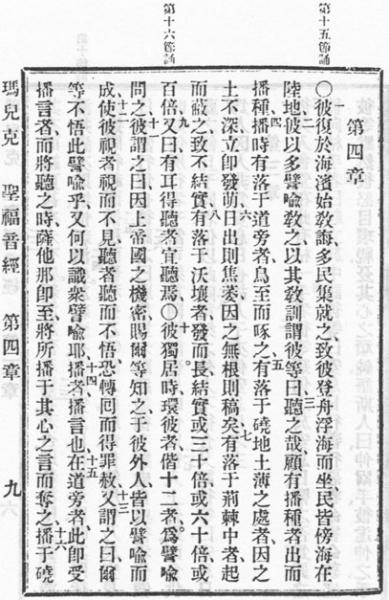 第十五節誦
第十六節誦
第四章
一〇彼復於海濱始敎誨多民集就之致彼登舟浮海而坐民皆傍海在
陸地二彼以多譬喩敎之以其敎訓謂彼等曰三聽之哉顧有播種者出而
播種四播時有落于道旁者鳥至而啄之五有落于磽地土薄之處者因之
土不深立卽發萌六日出則焦萎因之無根則稿矣七有落于荊棘中者起
而蔽之致不結實八有落于沃壤者發而長結實或三十倍或六十倍或
百倍九又曰有耳得聽者宜聽焉〇十彼獨居時環彼者偕十二者爲譬喩
問之十一彼謂之曰因上帝國之機密賜爾等知之于彼外人皆以譬喩而
成十二使彼視者視而不見聽者聽而不悟恐轉回而得罪赦十三又謂之曰爾
等不悟此譬喩乎又何以識衆譬喩耶十四播者播言也十五在道旁者此卽受
播言者而將聽之時薩他那卽至將所播于其心之言而奪之十六播于磽
瑪兒克 聖福音經 第四章 九